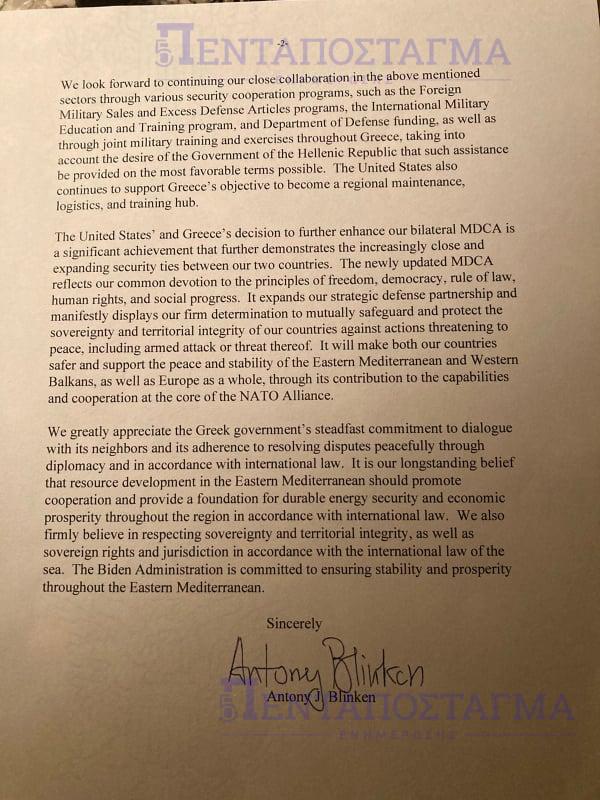 ΠΕΝΤΑΠΟΣΤΑΓΜΑ
-2-
We look forward to continuing our close collaboration in the above mentioned
sectors through various security cooperation programs, such as the Foreign
Military Sales and Excess Defense Articles programs, the International Military
Education and Training program, and Department of Defense funding, as well as
through joint military training and exercises throughout Greece, taking into
account the desire of the Government of the Hellenic Republic that such assistance
be provided on the most favorable terms possible. The United States also
continues to support Greece's objective to become a regional maintenance,
logistics, and training hub.
The United States' and Greece's decision to further enhance our bilateral MDCA is
a significant achievement that further demonstrates the increasingly close and
expanding security ties between our two countries. The newly updated MDCA
reflects our common devotion to the principles of freedom, democracy, rule of law,
human rights, and social progress. It expands our strategic defense partnership and
manifestly displays our firm determination to mutually safeguard and protect the
sovereignty and territorial integrity of our countries against actions threatening to
peace, including armed attack or threat thereof. It will make both our countries
safer and support the peace and stability of the Eastern Mediterranean and Western
Balkans, as well as Europe as a whole, through its contribution to the capabilities
and cooperation at the core of the NATO Alliance.
We greatly appreciate the Greek government's steadfast commitment to dialogue
with its neighbors and its adherence to resolving disputes peacefully through
diplomacy and in accordance with international law. It is our longstanding belief
that resource development in the Eastern Mediterranean should promote
cooperation and provide a foundation for durable energy security and economic
prosperity throughout the region in accordance with international law. We also
firmly believe in respecting sovereignty and territorial integrity, as well as
sovereign rights and jurisdiction in accordance with the international law of the
sea. The Biden Administration is committed to ensuring stability and prosperity
throughout the Eastern Mediterranean.
Sincerely
Antony Blinken
Antony J. Blinken
ΠΕΝΤΑΠΟΣΤΑΓΜΑ
ΕΝΗΜΕΡΩΣΗΣ